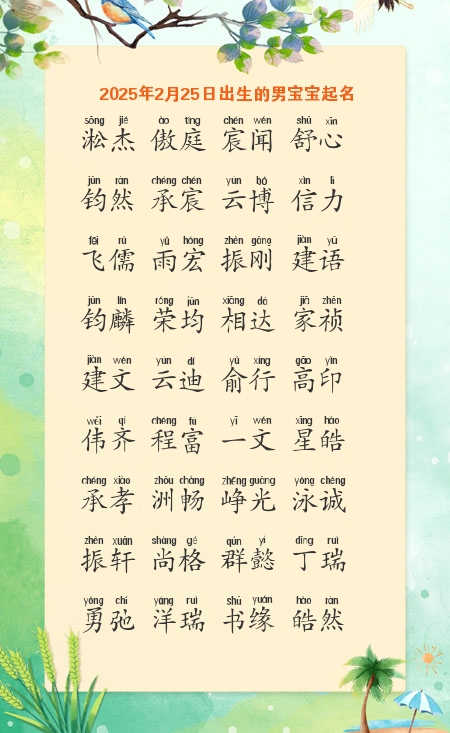 2025年2月25日出生的男宝宝起名
sōng jié ào tíng chén wén shū xīn
淞杰 傲庭 宸闻 舒心
jūn rán chéng chén yún bó xìn lì
钧然 承宸 云博 信力
fēi rú yǔ hóng zhèn gāng jiàn yǔ
飞儒 雨宏 振刚 建语
jūn lín róng jūn xiāng dá jiā zhēn
钧麟 荣均 相达 家祯
jiàn wén yún dí yú xíng gāo yìn
建文 云迪 俞行 高印
wěi qí chéng fù yī wén xīng hào
伟齐 程富 一文 星皓
chéng xiào zhōu chàng zhēng guāng yǒng chéng
承孝 洲畅 峥光 泳诚
zhèn xuān shàng gé qún yì dīng ruì
振轩 尚格 群懿 丁瑞
yǒng chí yáng ruì shū yuán hào rán
勇弛 洋瑞 书缘 皓然